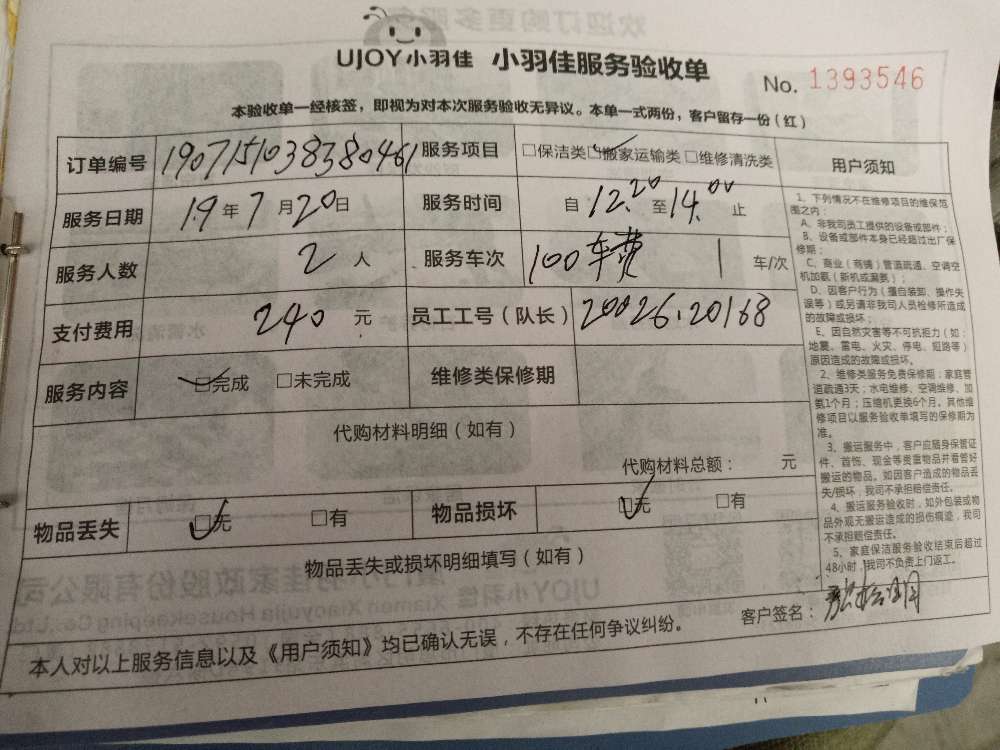 UJOY小羽佳 小羽佳服务验收单
No. 1393546
本验收单一经核签，即视为对本次服务验收无异议。本单一式两份，客户留存一份（红）
订单编号 190715103838380461 服务项目 □保洁类 □搬家运输类 □维修清洗类
服务日期 19年7月20日 服务时间 自12.20至14.00止
服务人数 2人 服务车次 100车费 1车/次
支付费用 240元 员工工号（队长） 20026.20168
服务内容 □完成 □未完成 维修类保修期
代购材料明细（如有）
代购材料总额： 元
物品丢失 □无 □有 物品损坏 □无 □有
物品丢失或损坏明细填写（如有）
本人对以上服务信息以及《用户须知》均已确认无误，不存在任何争议纠纷。
用户须知
1、下列情况不在维修项目的维保范
围之内：
A、非我司员工提供的设备或部件；
B、设备或部件本身已经超过出厂保
修期；
C、商业（商铺）管道疏通、空调空
机加氨（新机或漏氨）；
D、因客户行为（擅自装卸、操作失
误等）或另请非我司人员检修所造成
的故障或损坏；
E、因自然灾害等不可抗拒力（如：
地震、雷电、火灾、停电、短路等）
原因造成的故障或损坏。
2、维修类服务免费保修期：家庭管
道疏通3天；水电维修、空调维修、加
氨1个月；压缩机更换6个月。其他维
修项目以服务验收单填写的保修期为
准。
3、搬运服务中，客户应随身保管证
件、首饰、现金等贵重物品并看管好
搬运的物品。如因客户造成的物品丢
失/损坏，我司不承担赔偿责任。
4、搬运服务验收时，如外包装或物
品外观无搬运造成的损伤痕迹，我司
不承担赔偿责任。
5、家庭保洁服务验收结束后超过
48小时，我司不负责上门返工。
客户签名：